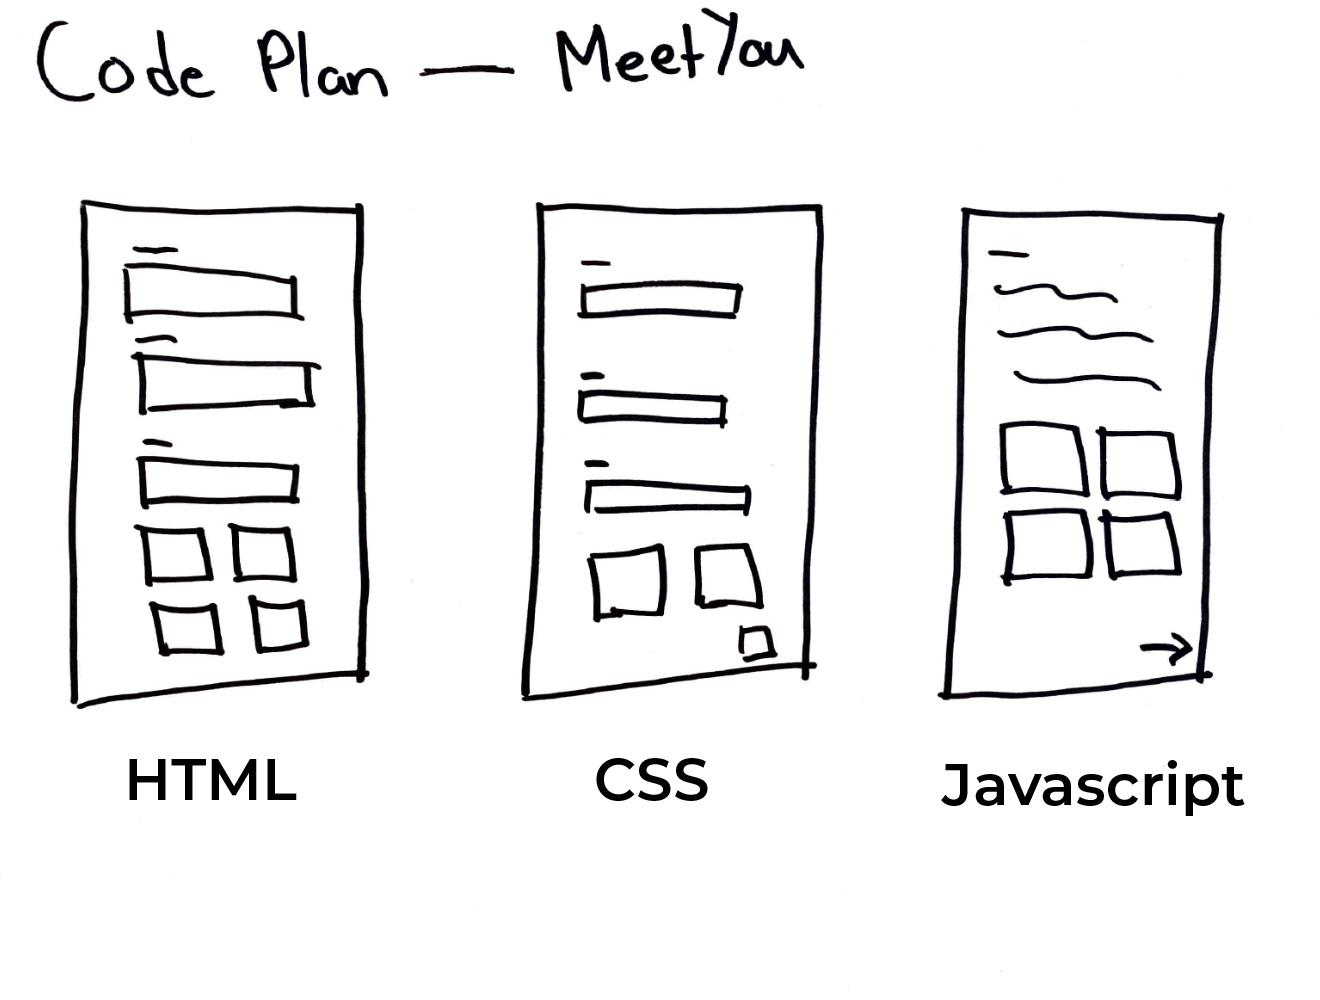 Code Plan — MeetYou
HTML
CSS
Javascript